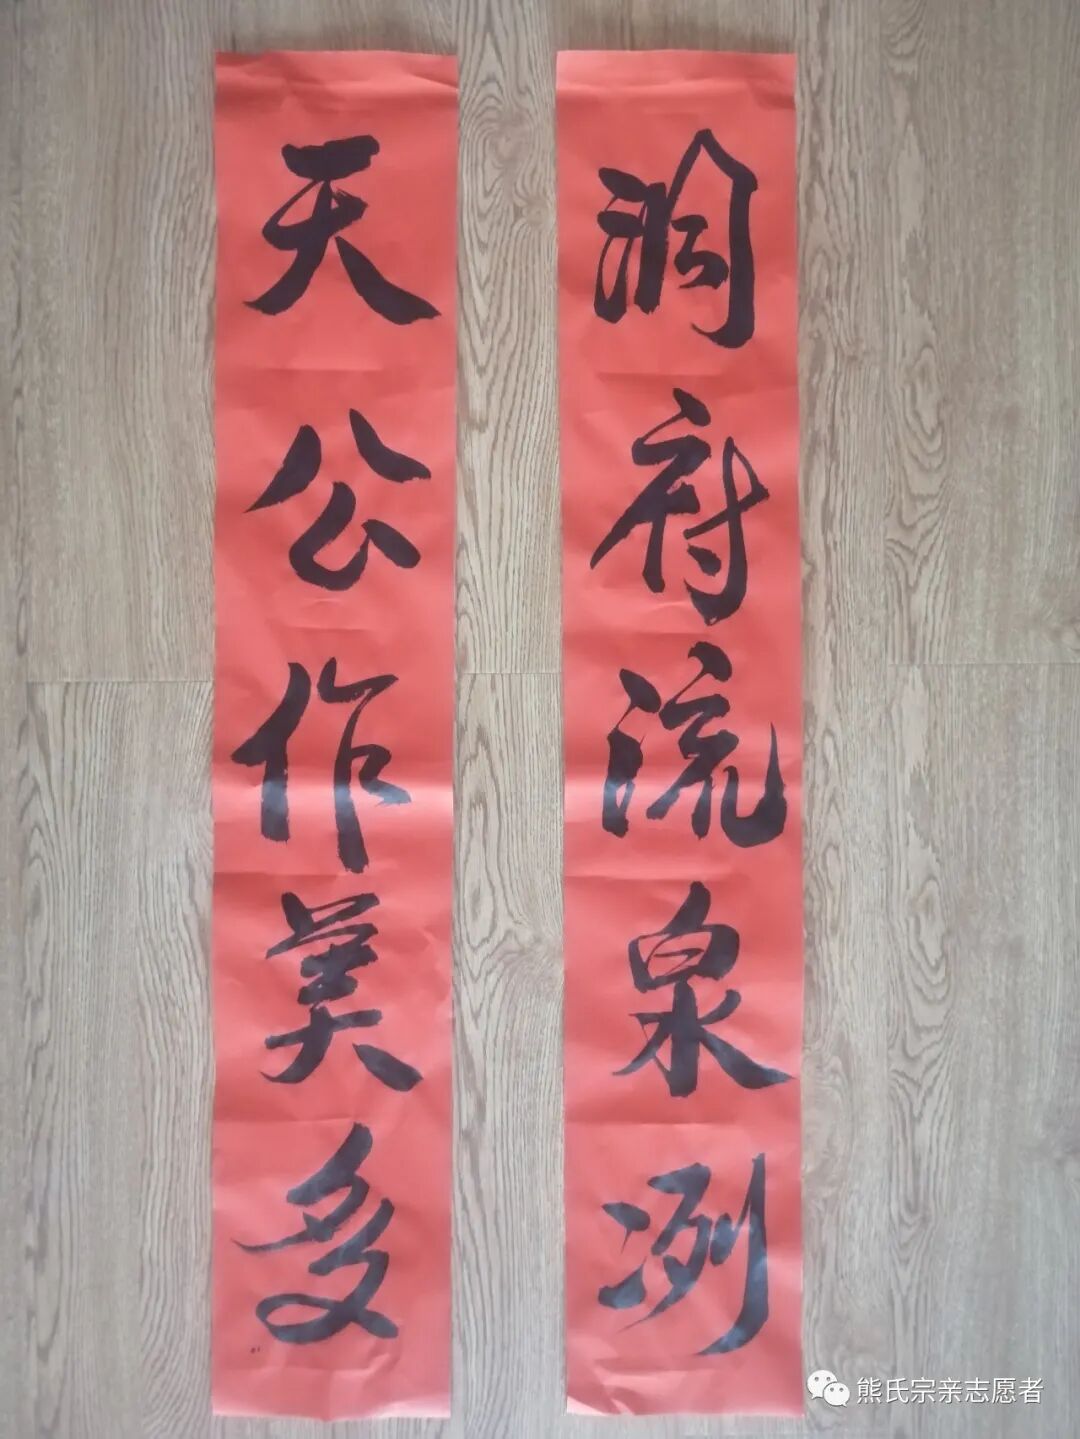 洞府流泉冽
天公作美多
熊氏宗亲志愿者